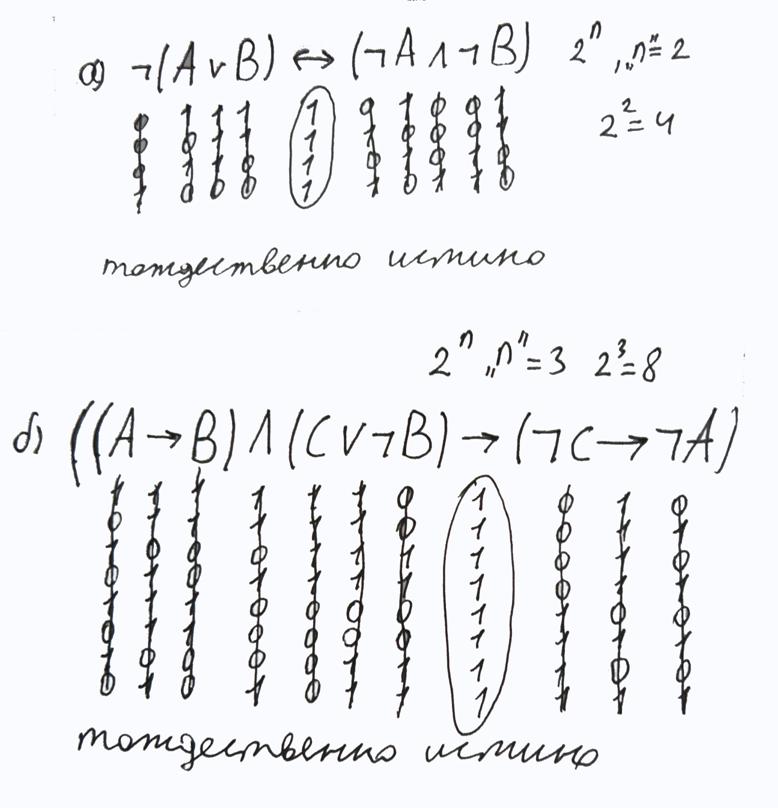 а) ¬(A ∨ B) ↔ (¬A ∧ ¬B) 2ⁿ „n"=2
2²=4
0 1 1 1 1 0 1 0 0 1
0 0 1 1 1 1 0 0 0 1
0 1 1 0 1 0 1 0 1 0
1 0 0 0 1 1 0 1 1 0
тождественно истино
2ⁿ „n"=3 2³=8
б) ((A → B) ∧ (C ∨ ¬B) → (¬C → ¬A)
1 1 1 1 1 1 0 1 0 1 0
0 1 1 1 1 1 0 1 0 1 1
1 0 0 0 1 1 1 1 0 1 0
0 1 0 1 1 1 1 1 0 1 1
1 1 1 0 0 0 0 1 1 0 0
0 1 1 0 0 0 0 1 1 1 1
1 0 0 0 0 1 1 1 1 0 0
0 1 0 1 0 1 1 1 1 1 1
тождественно истино